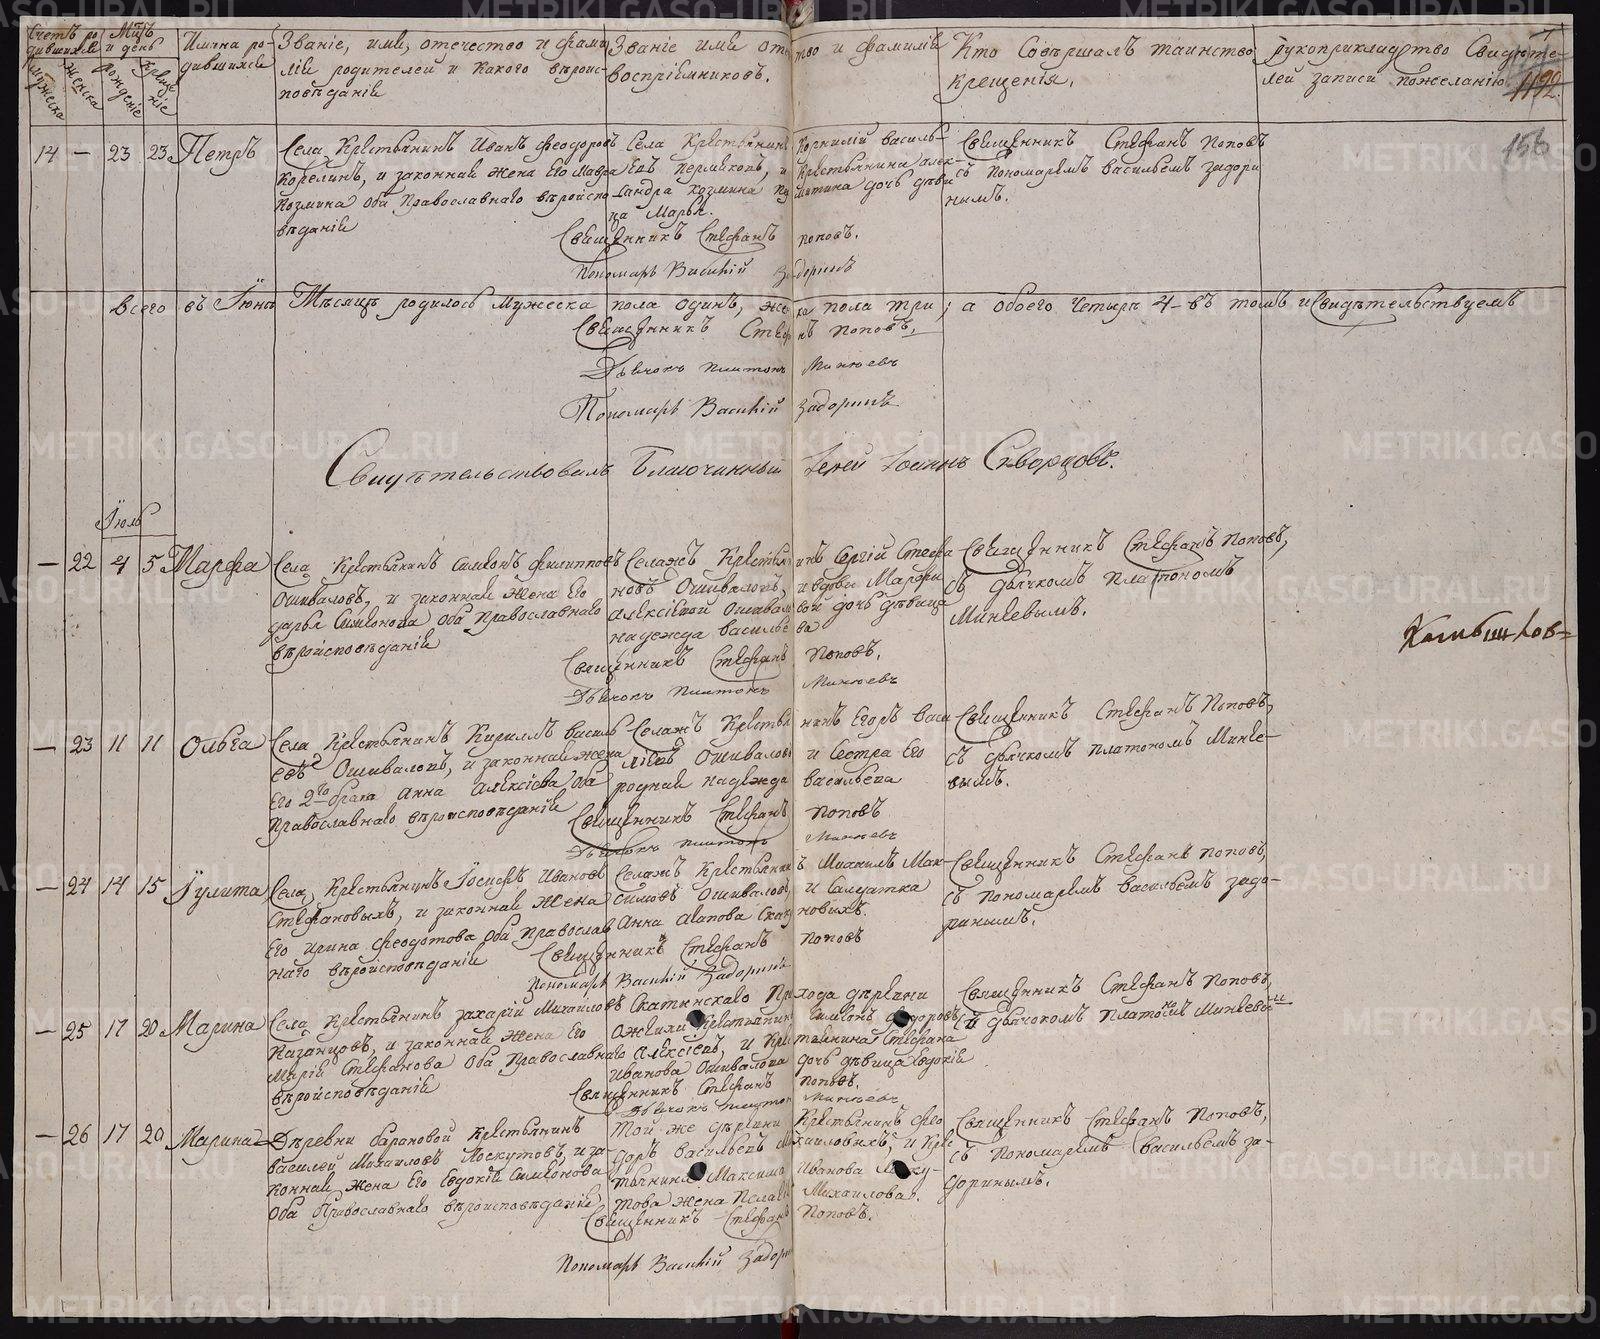 Счетъ ро-
дившихся
Мѣц
и день
Имяна ро-
дившихся
Званіе, имя, отечество и фами-
ліи родителей и какого вѣроис-
повѣданія
Званіе имя отчество и фамилія
воспріѣмниковъ.
Кто совѣршалъ таинство
крещенія.
Рукоприкладство свидѣте-
лей записи пожеланію
Мужеска
Женска
рожденіе
креще
ніе
1192.
156
14 — 23 23 Петръ
Села Крестьянинъ Иванъ Феодоровъ
Корелинъ, и законная жена его Мавра
Козмина оба православнаго вѣроиспо-
вѣданія
Села Крестьянинъ Корнилій Василь-
евъ Пермяковъ, и крестьянина Алек-
сандра Козмина дочь дѣви
ца Марья.
Священникъ Стефанъ Поповъ
съ пономаремъ Васильемъ Задори
нымъ.
Священникъ Стефанъ Поповъ.
Пономарь Василій Задоринъ
Всего въ Іюнѣ Мѣсяцѣ родилось мужеска пола одинъ, женска пола три; а обоего четырѣ 4 — въ томъ и свидѣтельствуемъ
Священникъ Стефанъ Поповъ.
Дьячокъ Платонъ Минѣевъ
Пономарь Василій Задоринъ
Свидѣтельствовалъ Благочинный Іерей Іоаннъ Скворцовъ.
Іюль
— 22 4 5 Марфа
Села Крестьянинъ Симеонъ Филипповъ
Ошиваловъ, и законная жена его
Дарья Симеонова оба православнаго
вѣроисповѣданія
Селажъ Крестьянинъ Сергій Стефа
новъ Ошиваловъ, и вдовы Марфы
Алексіевой Ошиваловой дочь дѣвица
Надежда Васильева
Священникъ Стефанъ Поповъ,
съ дьячкомъ Платономъ
Минѣевымъ.
Священникъ Стефанъ Поповъ.
Дьячокъ Платонъ Минѣевъ
— 23 11 11 Ольга
Села Крестьянинъ Кириллъ Василь-
евъ Ошиваловъ, и законная жена
его 2го брака Анна Алексіева оба
православнаго вѣроисповѣданія
Селажъ Крестьянинъ Егоръ Васи
ліевъ Ошиваловъ и сестра его
родная Надежда Васильева
Священникъ Стефанъ Поповъ,
съ дьячкомъ Платономъ Минѣе-
вымъ.
Священникъ Стефанъ Поповъ
Дьячокъ Платонъ Минѣевъ
— 24 14 15 Іулита
Села Крестьянинъ Іосифъ Ивановъ
Стефановыхъ, и законная жена
его Ирина Феодотова оба православ
наго вѣроисповѣданія
Селажъ Крестьянинъ Михаилъ Мак-
симовъ Ошиваловъ, и Салдатка
Анна Агапова
Священникъ Стефанъ Поповъ,
съ пономаремъ Васильемъ Задо-
ринымъ.
Священникъ Стефанъ Поповъ
Пономарь Василій Задоринъ
— 25 17 20 Марина
Села Крестьянинъ Захарій Михайловъ
Казанцовъ, и законная жена его
Марія Стефанова оба православнаго
вѣроисповѣданія
Скатинскаго прихода дѣревни
Крестьянинъ Симеонъ Федоровъ
Алексіевъ, и крестьянина Стефана
Иванова Ошивалова дочь дѣвица Евдокія
Священникъ Стефанъ Поповъ,
съ дьячкомъ Платономъ Минѣевы
Священникъ Стефанъ Поповъ.
Дьячокъ Платонъ Минѣевъ
— 26 17 20 Марина
Дѣревни Барановой Крестьянинъ
Василей Михайловъ Лоскутовъ, и за-
конная жена его Евдокія Симеонова
оба православнаго вѣроисповѣданія
Той же дѣревни Крестьянинъ Фео
доръ Васильевъ Михайловыхъ, и крес
тьянина Максима Иванова Лоску-
това жена Пелагея Михайлова.
Священникъ Стефанъ Поповъ,
съ пономаремъ Васильемъ За-
доринымъ.
Священникъ Стефанъ Поповъ.
Пономарь Василій Задоринъ
METRIKI.GASO-URAL.RU